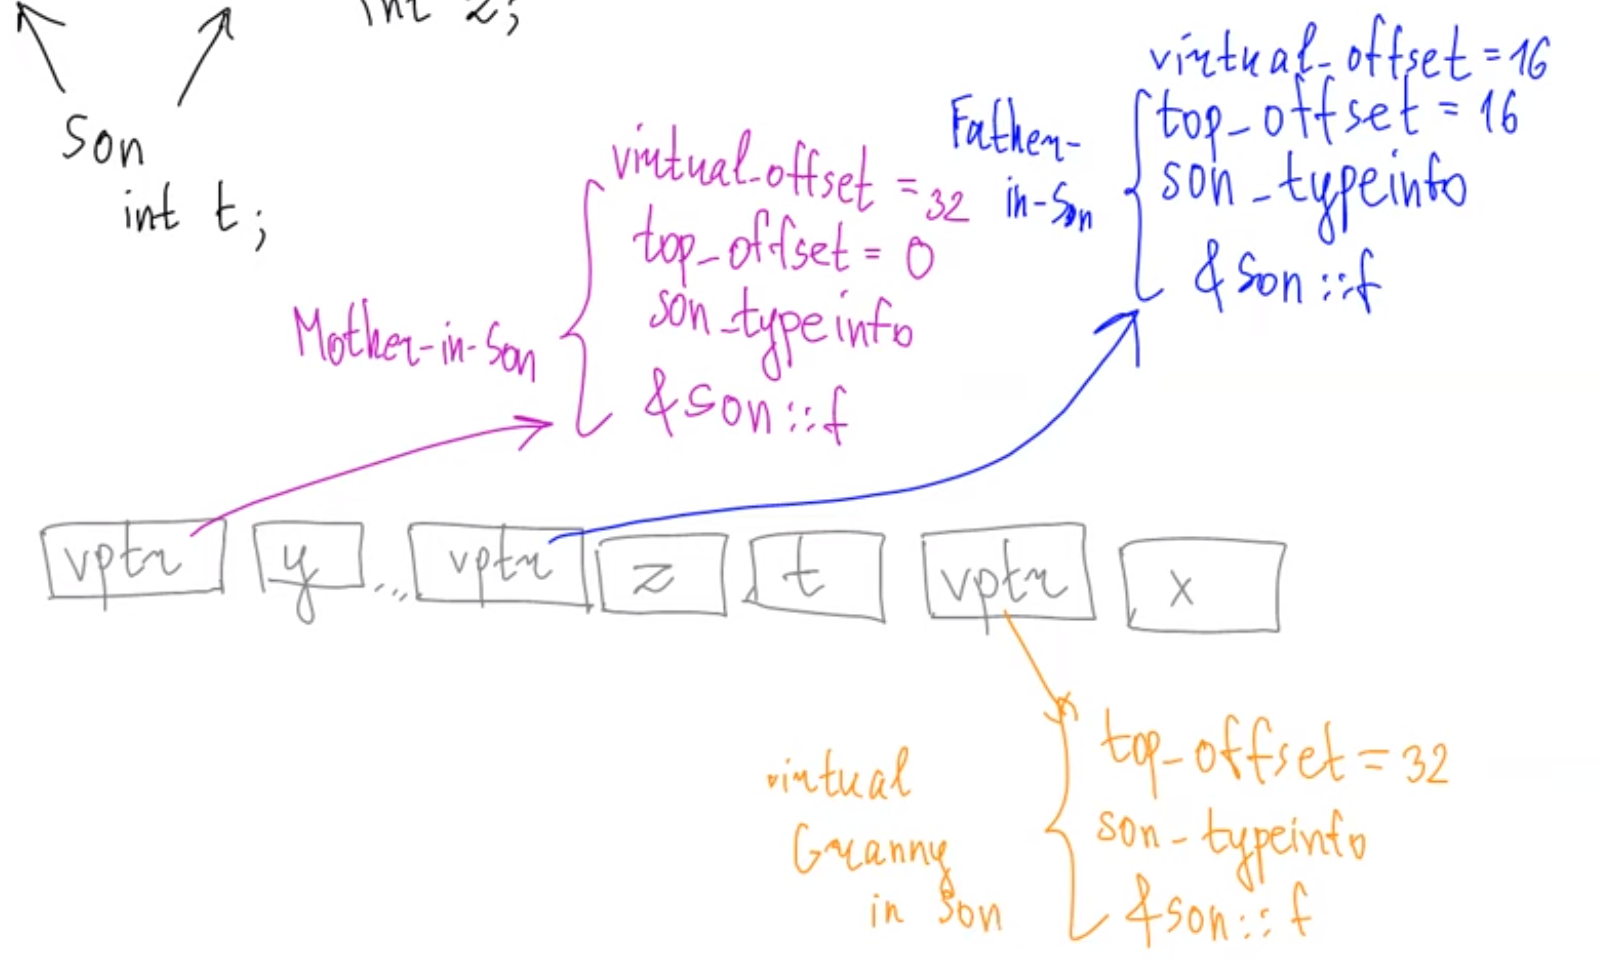 int z;
Son
int t;
virtual_offset = 16
top_offset = 16
son_typeinfo
&son::f
Father-
in-Son
virtual_offset = 32
top_offset = 0
son_typeinfo
&son::f
Mother-in-Son
vptr y ... vptr z t vptr x
virtual
Granny
in Son
top_offset = 32
son_typeinfo
&son::f